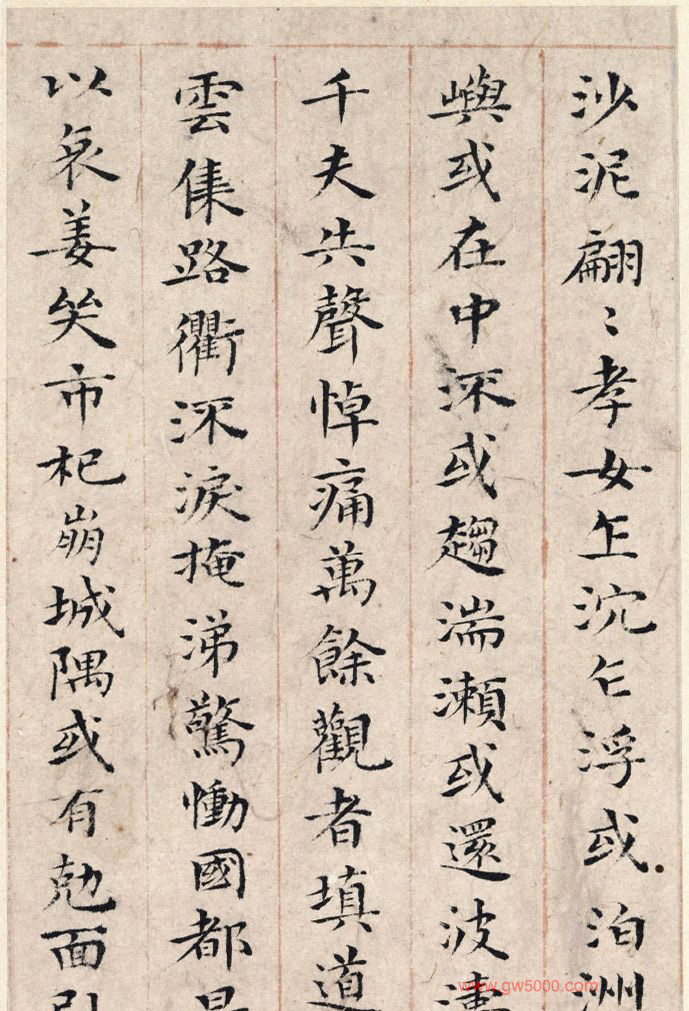 沙泥翩〻孝女乍沉乍浮或泊洲
嶼或在中深或趨湍瀨或還波濤
千夫共聲悼痛萬餘觀者填道
雲集路衢深淚掩涕驚慟國都是
以哀姜哭市杞崩城隅或有勊面引
www.gw5000.com